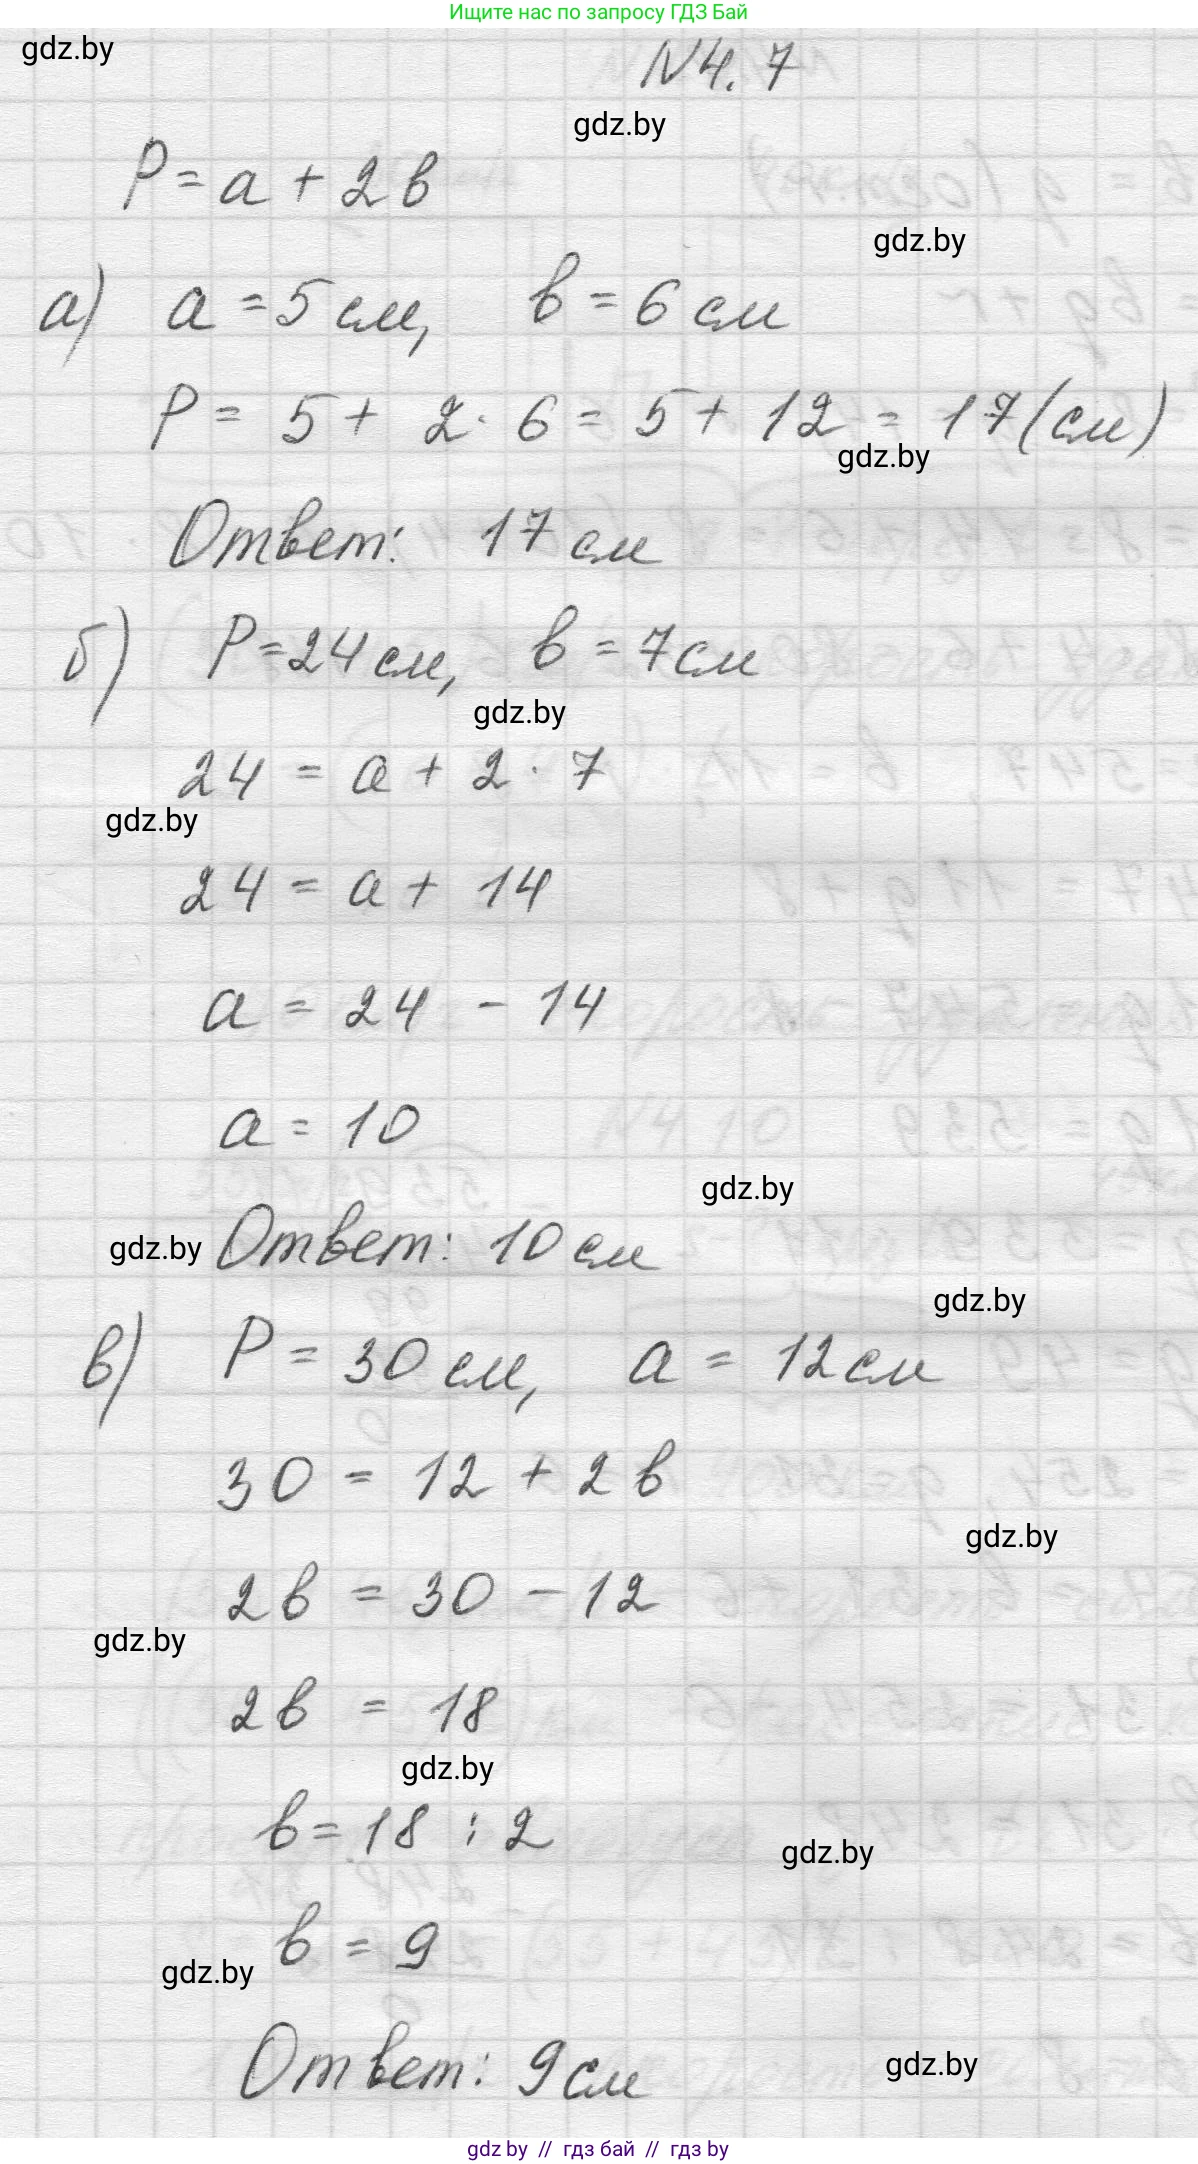 Ищите нас по запросу ГДЗ Бай
gdz.by
N4.7
gdz.by
P = a + 2b
gdz.by
а) a = 5 см, b = 6 см
P = 5 + 2 · 6 = 5 + 12 = 17 (см)
gdz.by
Ответ: 17 см
б) P = 24 см, b = 7 см
gdz.by
24 = a + 2 · 7
gdz.by
24 = a + 14
a = 24 - 14
a = 10
gdz.by
gdz.by Ответ: 10 см
gdz.by
в) P = 30 см, a = 12 см
30 = 12 + 2b
gdz.by
2b = 30 - 12
gdz.by
2b = 18
gdz.by
b = 18 : 2
gdz.by
b = 9
gdz.by
Ответ: 9 см
gdz.by
gdz by // гдз бай // гдз by